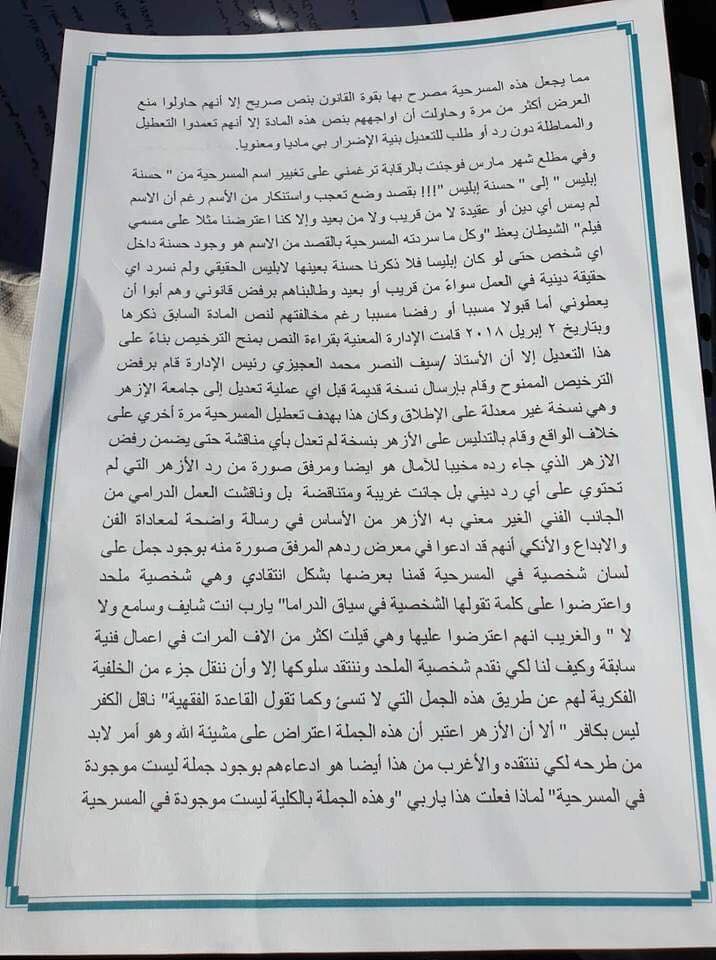 مما يجعل هذه المسرحية مصرح بها بقوة القانون بنص صريح إلا أنهم حاولوا منع
العرض أكثر من مرة وحاولت أن اواجههم بنص هذه المادة إلا أنهم تعمدوا التعطيل
والمماطلة دون رد أو طلب للتعديل بنية الإضرار بي ماديا ومعنويا.
وفي مطلع شهر مارس فوجئت بالرقابة ترغمني على تغيير اسم المسرحية من " حسنة
إبليس " إلى " حسنة إبليس "!!! بقصد وضع تعجب واستنكار من الأسم رغم أن الاسم
لم يمس أي دين أو عقيدة لا من قريب ولا من بعيد وإلا كنا اعترضنا مثلا على مسمي
فيلم" الشيطان يعظ "وكل ما سردته المسرحية بالقصد من الاسم هو وجود حسنة داخل
اي شخص حتى لو كان إبليسا فلا ذكرنا حسنة بعينها لابليس الحقيقي ولم نسرد اي
حقيقة دينية في العمل سواءً من قريب أو بعيد وطالبناهم برفض قانوني وهم أبوا أن
يعطوني أما قبولا مسببا أو رفضا مسببا رغم مخالفتهم لنص المادة السابق ذكرها
وبتاريخ ٢ إبريل ٢٠١٨ قامت الإدارة المعنية بقراءة النص بمنح الترخيص بناءً على
هذا التعديل إلا أن الأستاذ /سيف النصر محمد العجيزي رئيس الإدارة قام برفض
الترخيص الممنوح وقام بإرسال نسخة قديمة قبل اي عملية تعديل إلى جامعة الإزهر
وهي نسخة غير معدلة على الإطلاق وكان هذا بهدف تعطيل المسرحية مرة أخري على
خلاف الواقع وقام بالتدليس على الأزهر بنسخة لم تعدل بأي مناقشة حتى يضمن رفض
الازهر الذي جاء رده مخيبا للآمال هو ايضا ومرفق صورة من رد الأزهر التي لم
تحتوي على أي رد ديني بل جائت غريبة ومتناقضة بل وناقشت العمل الدرامي من
الجانب الفني الغير معني به الأزهر من الأساس في رسالة واضحة لمعاداة الفن
والابداع والأنكي أنهم قد ادعوا في معرض ردهم المرفق صورة منه بوجود جمل على
لسان شخصية في المسرحية قمنا بعرضها بشكل انتقادي وهي شخصية ملحد
واعترضوا على كلمة تقولها الشخصية في سياق الدراما" يارب انت شايف وسامع ولا
لا " والغريب انهم اعترضوا عليها وهي قيلت اكثر من الاف المرات في اعمال فنية
سابقة وكيف لنا لكي نقدم شخصية الملحد وننتقد سلوكها إلا وأن ننقل جزء من الخلفية
الفكرية لهم عن طريق هذه الجمل التي لا تسئ وكما تقول القاعدة الفقهية" ناقل الكفر
ليس بكافر " ألا أن الأزهر اعتبر أن هذه الجملة اعتراض على مشيئة الله وهو أمر لابد
من طرحه لكي ننتقده والأغرب من هذا أيضا هو ادعاءهم بوجود جملة ليست موجودة
في المسرحية" لماذا فعلت هذا ياربي "وهذه الجملة بالكلية ليست موجودة في المسرحية